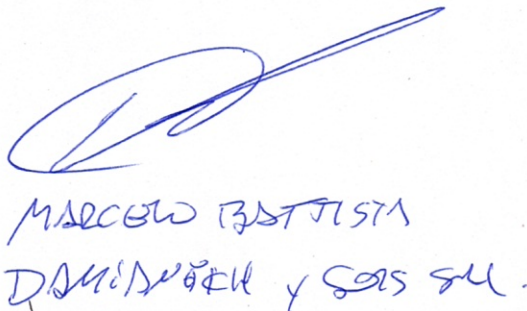 MARCELO BATTISTA
DAMIANOVICH y SOLS SRL.